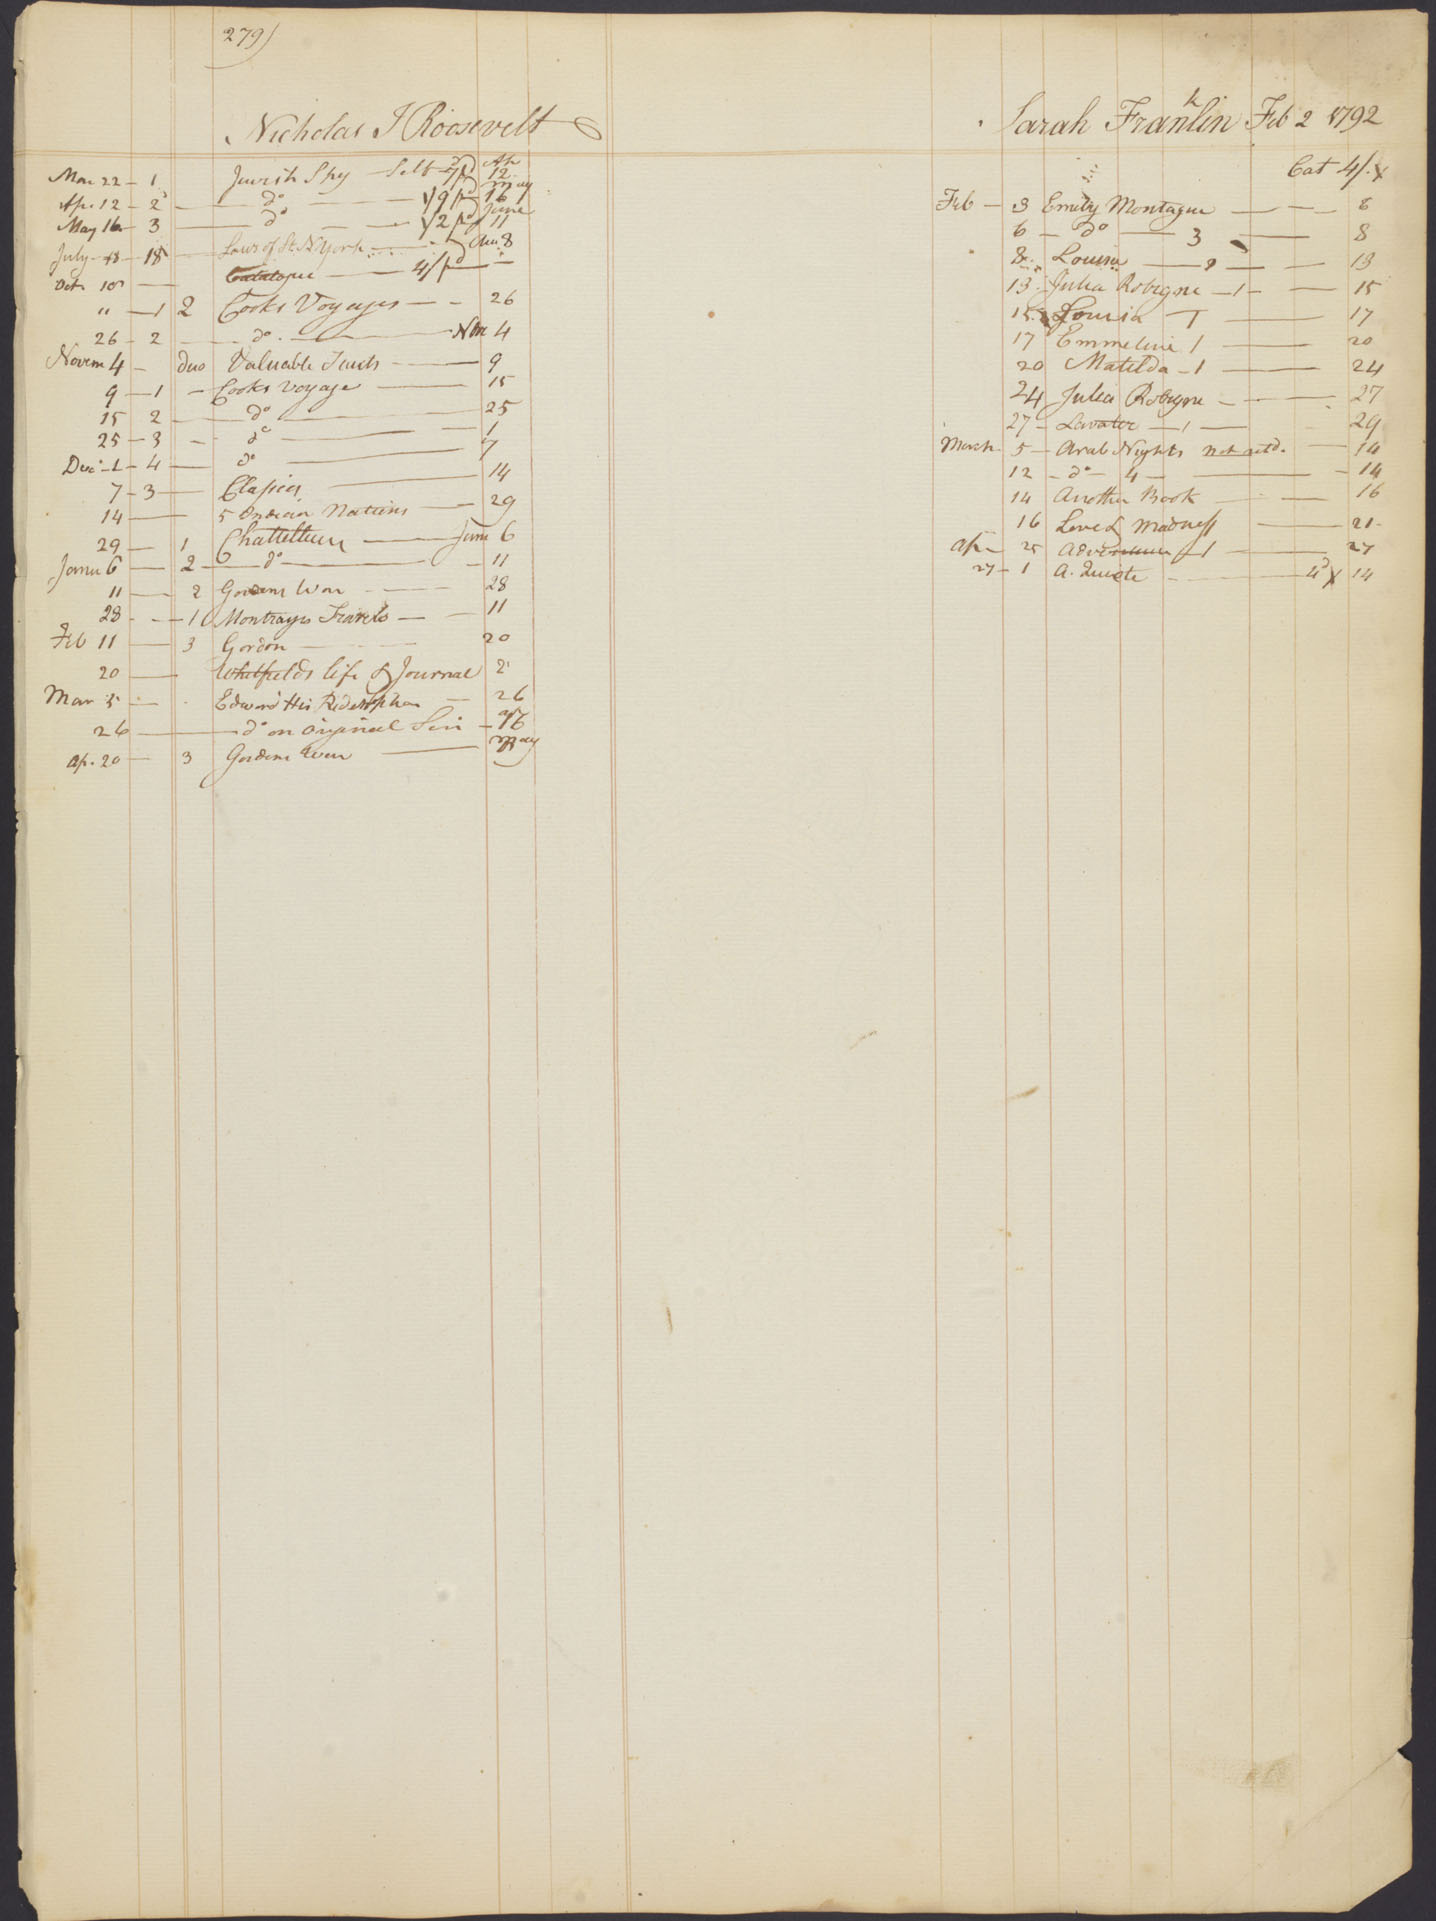 279)
Nicholas J Roosevelt
Mar 22 - 1 Jewish Spy - Self Ap 12
Ap. 12 - 2 do 1/9 pd May 16
May 16 - 3 do 1/2 pd June 11
July 18 - 18 Laws of St. N York Au. 8
Oct 10 Catalogue 4/ pd
" - 1 2 Cooks Voyages 26
26 - 2 do Nov 4
Novem 4 - duo Valuable 9
9 - 1 - Cooks voyage 15
15 2 do 25
25 - 3 do 1
Dec 1 - 4 do 7
7 - 3 Clasica 14
14 5 Indian Nations 29
29 1 6
Janu 6 2 do 11
11 2 Gordons War 28
28 - 1 Travels 11
Feb 11 3 Gordon 20
20 Whitfields life & Journal 2
Mar 5 Edward His Redemption 26
26 do on original Sin ap 16
Ap. 20 3 Gordons War May
Sarah Franklin Feb 2 1792
Cat 4/. x
Feb - 3 Emily Montague 8
6 - do 3 8
8 Louisa 2 13
13 Julia Robigne - 1 - 15
15 Louisa 1 17
17 Emmeline 1 20
20 Matilda - 1 24
24 Julia Robigne 27
27 - Lavater - 1 29
March 5 - Arab Nights not retd. 14
12 - do 4 14
14 Another Book 16
16 Love & Madness 21
Ap 25 1 27
27 - 1 A. Quixote 4d x 14